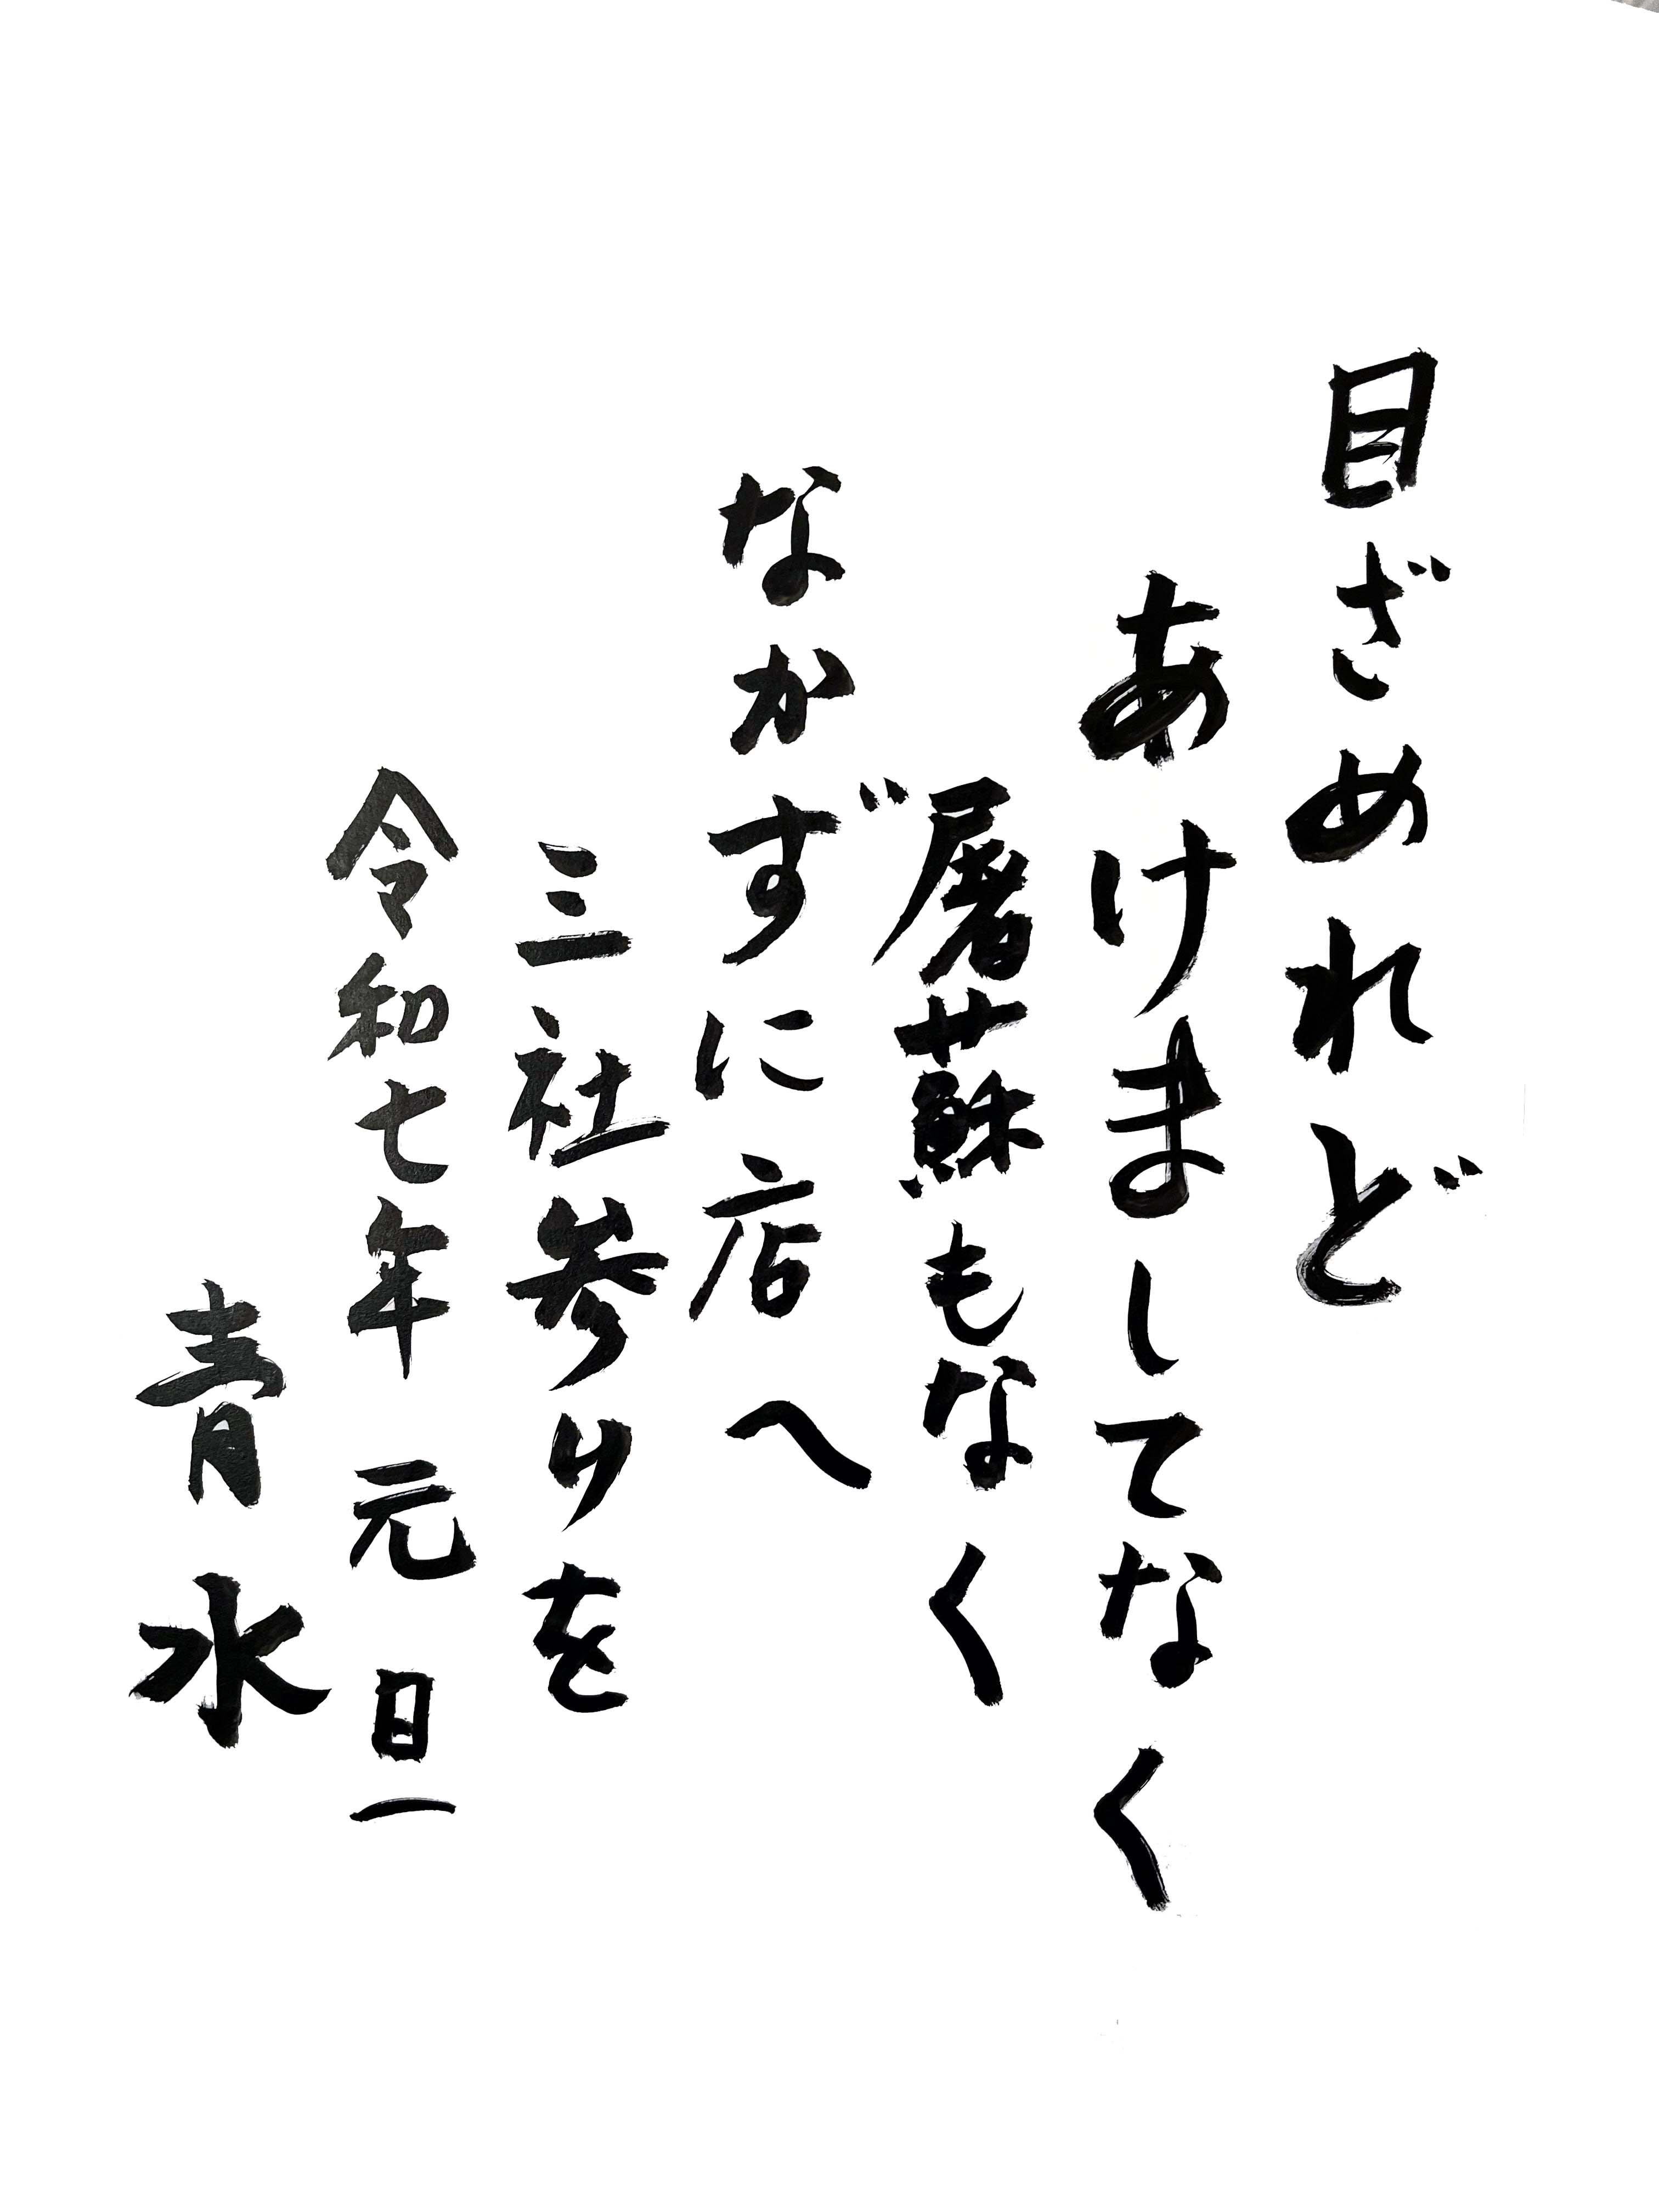 目ざめれど
あけましてなく
屠蘇もなく
なかずに店へ
三社参りを
令和七年元日一
青水